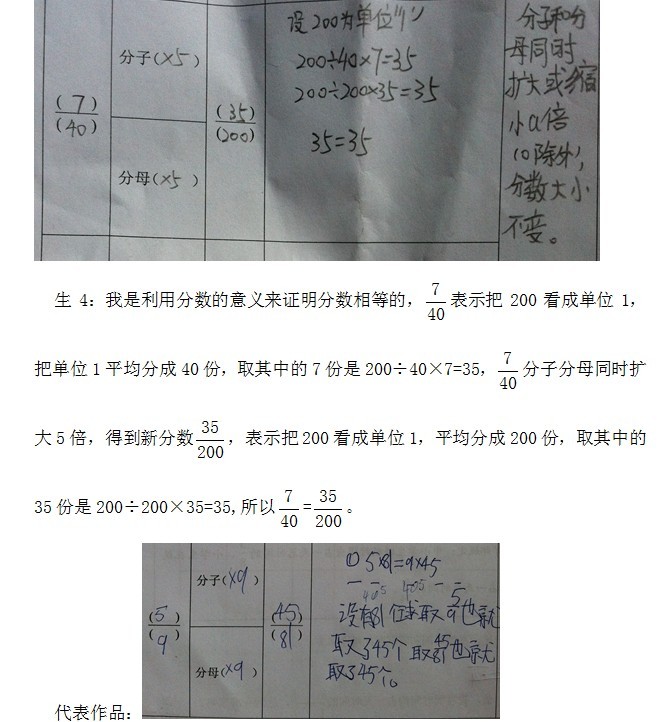 (7)
(40)
分子(×5)
分母(×5)
(35)
(200)
设200为单位"1"
200÷40×7=35
200÷200×35=35
35=35
分子和分
母同时
扩大或缩
小a倍
(0除外),
分数大小
不变。
生 4：我是利用分数的意义来证明分数相等的，7/40 表示把 200 看成单位 1，
把单位 1 平均分成 40 份，取其中的 7 份是 200÷40×7=35，7/40 分子分母同时扩
大 5 倍，得到新分数 35/200，表示把 200 看成单位 1，平均分成 200 份，取其中的
35 份是 200÷200×35=35,所以 7/40=35/200。
(5)
(9)
分子(×9)
分母(×9)
(45)
(81)
① 5×81=9×45
405 405
设有81 取 5/9 也就
取了45个 取 45/81 也就
取了45个。
代表作品：